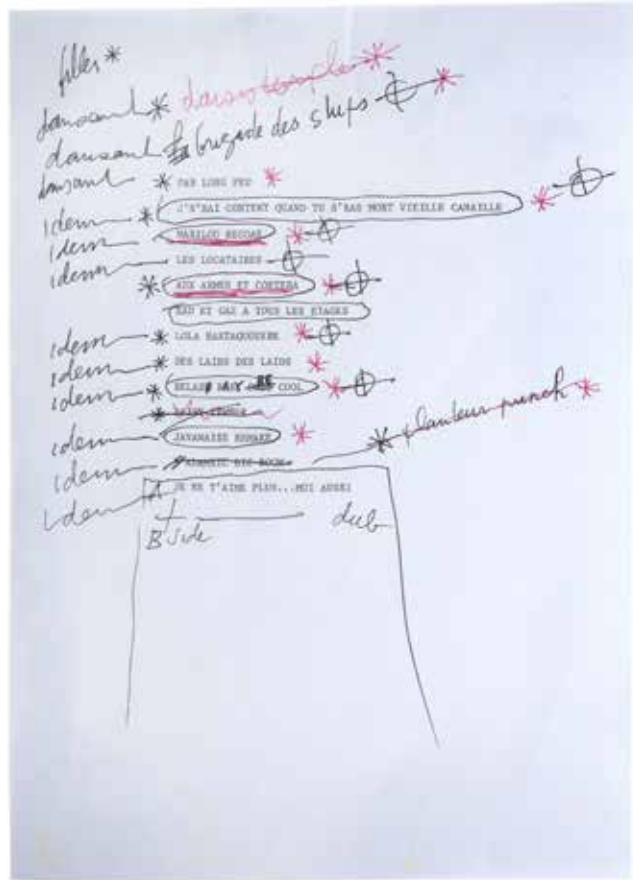 filles *
dansant * daisy temple *
dansant la brigade des slips *
dansant * PAS LONG FEU *
idem * J'S'RAI CONTENT QUAND TU S'RAS MORT VIEILLE CANAILLE *
idem MARILOU REGGAE *
idem LES LOCATAIRES
* AUX ARMES ET CÆTERA *
EAU ET GAZ A TOUS LES ETAGES
idem * LOLA RASTAQUOUERE *
idem * DES LAIDS DES LAIDS *
idem * RELAX BABY BE COOL *
* DAISY TEMPLE
idem JAVANAISE REMAKE *
idem * planteur punch *
idem JE NE T'AIME PLUS...MOI AUSSI
+ dub
B Side